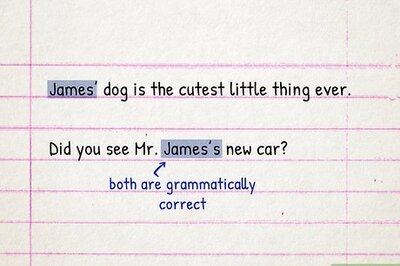 James' dog is the cutest little thing ever.
Did you see Mr. James's new car?
both are grammatically
correct